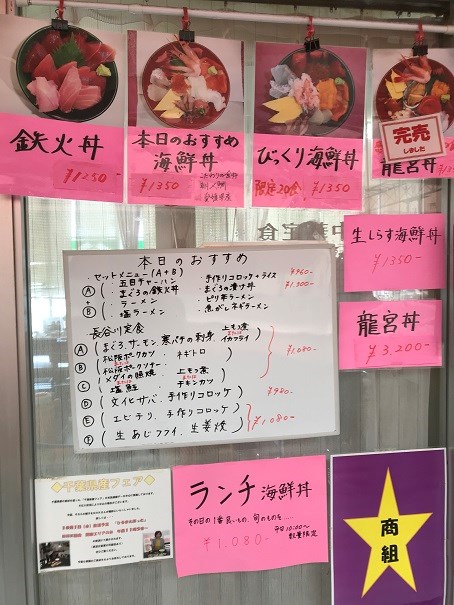 鉄火丼
¥1250-
本日のおすすめ
海鮮丼
¥1350
びっくり海鮮丼
限定20食 ¥1350
完売
しました
龍宮丼
生しらす海鮮丼
¥1350-
龍宮丼
¥3,200-
本日のおすすめ
・セットメニュー(A+B)
・手作りコロッケ+ライス ¥960-
A
・五目チャーハン
・まぐろの鉄火丼 ・まぐろの漬け丼
¥1,300-
+
B
・ラーメン ・ピリ辛ラーメン
・塩ラーメン ・焦がしネギラーメン
長谷川定食
A (まぐろ、サーモン、寒バチの刺身 上もつ煮
または
イカフライ)
B (松阪ポークカツ ネギトロ)
または
松阪ポークソテー
¥1,080-
C (メダイの照焼 上もつ煮
または または
塩鮭 チキンカツ)
D (文化サバ、手作りコロッケ) ¥980-
E (エビチリ、手作りコロッケ)
F (生あじフライ、生姜焼)
¥1,080-
◆千葉県産フェア◆
ランチ 海鮮丼
その日の1番良いもの、旬のものを……
¥1,080-
平日10:00～
数量限定
商組